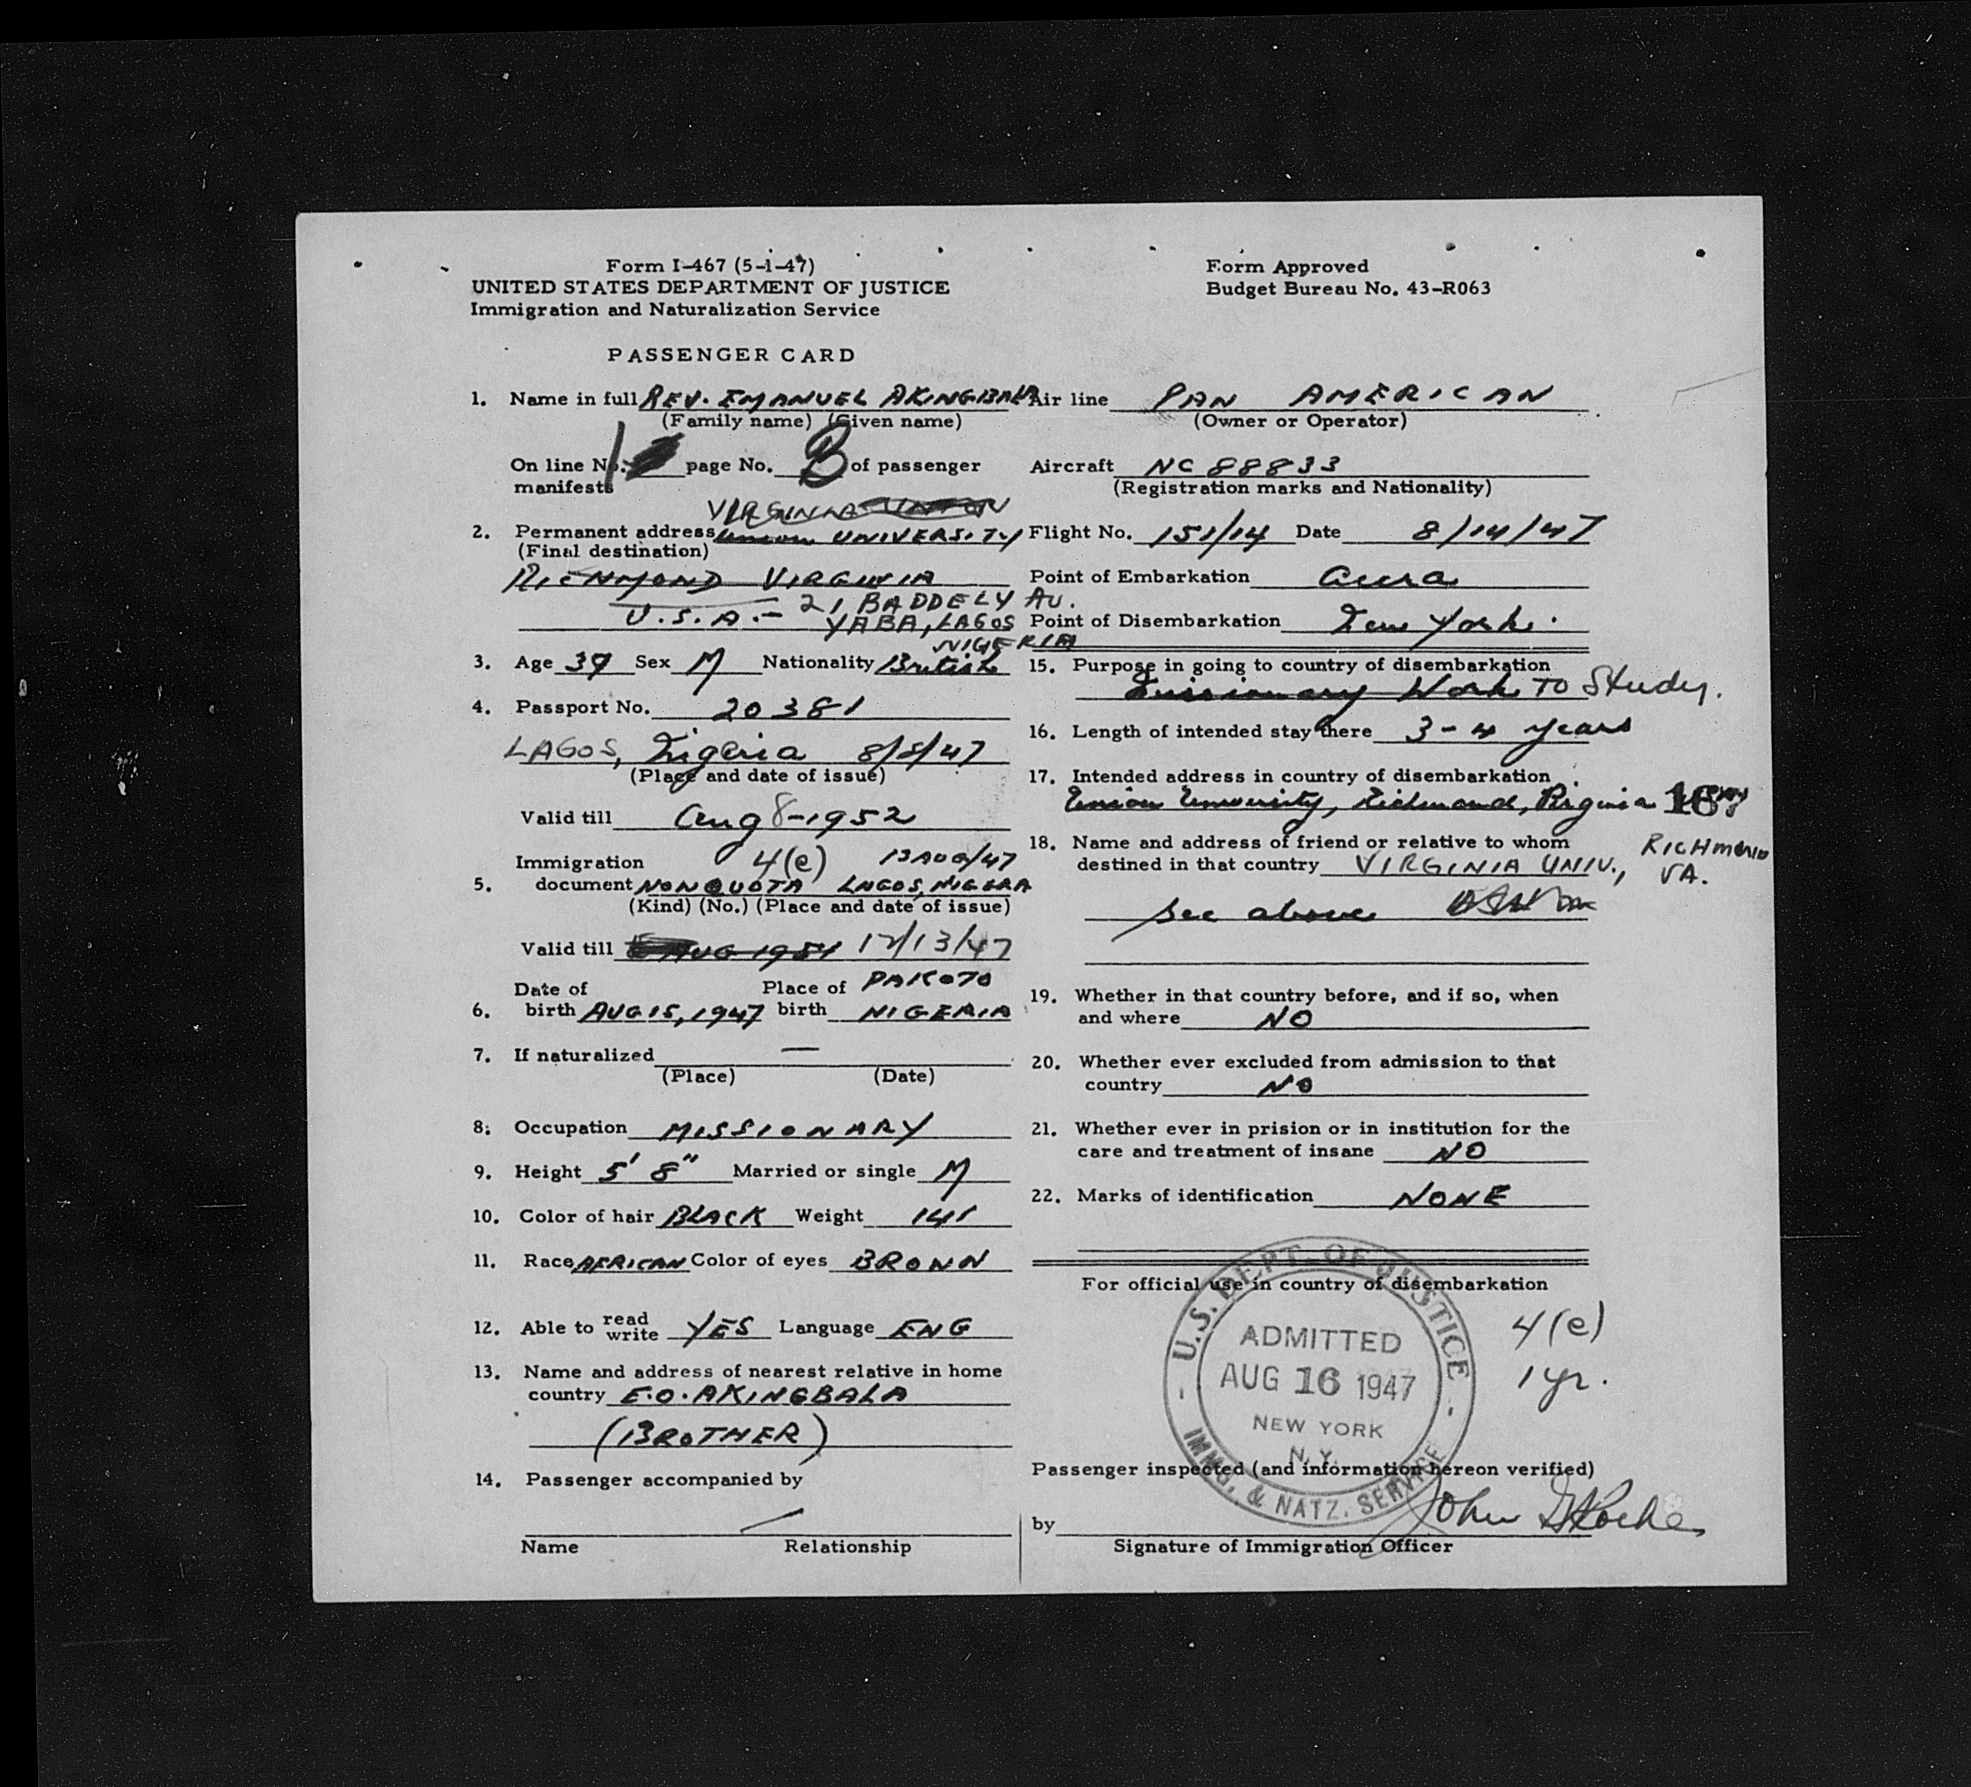 Form I-467 (5-1-47)
UNITED STATES DEPARTMENT OF JUSTICE
Immigration and Naturalization Service
Form Approved
Budget Bureau No. 43-R063
PASSENGER CARD
1. Name in full REV. EMANUEL AKINGBALA
(Family name) (Given name)
On line No. 1 page No. B of passenger
manifests
VIRGINIA UNION
2. Permanent address Union UNIVERSITY
(Final destination)
RICHMOND VIRGINIA
U.S.A. - 21, BADDELY AV.
YABA, LAGOS
NIGERIA
3. Age 39 Sex M Nationality British
4. Passport No. 20381
LAGOS, Nigeria 8/8/47
(Place and date of issue)
Valid till Aug 8-1952
Immigration 4(e) 13 AUG/47
5. document NONQUOTA LAGOS, NIGERA
(Kind) (No.) (Place and date of issue)
Valid till AUG 1951 12/13/47
Date of Place of PAKOTO
6. birth AUG 15, 1947 birth NIGERIA
7. If naturalized —
(Place) (Date)
8. Occupation MISSIONARY
9. Height 5' 8" Married or single M
10. Color of hair BLACK Weight 141
11. Race AFRICAN Color of eyes BROWN
12. Able to read write YES Language ENG
13. Name and address of nearest relative in home
country E.O. AKINGBALA
(BROTHER)
14. Passenger accompanied by
Name Relationship
Air line PAN AMERICAN
(Owner or Operator)
Aircraft NC 88833
(Registration marks and Nationality)
Flight No. 151/14 Date 8/14/47
Point of Embarkation Accra
Point of Disembarkation New York.
15. Purpose in going to country of disembarkation
Missionary Work TO Study.
16. Length of intended stay there 3-4 years
17. Intended address in country of disembarkation
Union University, Richmond, Virginia
18. Name and address of friend or relative to whom
destined in that country VIRGINIA UNIV., RICHMOND VA.
See above
19. Whether in that country before, and if so, when
and where NO
20. Whether ever excluded from admission to that
country NO
21. Whether ever in prision or in institution for the
care and treatment of insane NO
22. Marks of identification NONE
For official use in country of disembarkation
U.S. DEPT. OF JUSTICE
ADMITTED
AUG 16 1947
NEW YORK
N.Y.
IMMG. & NATZ. SERVICE
4(e)
1 yr.
Passenger inspected (and information hereon verified)
by John
Signature of Immigration Officer